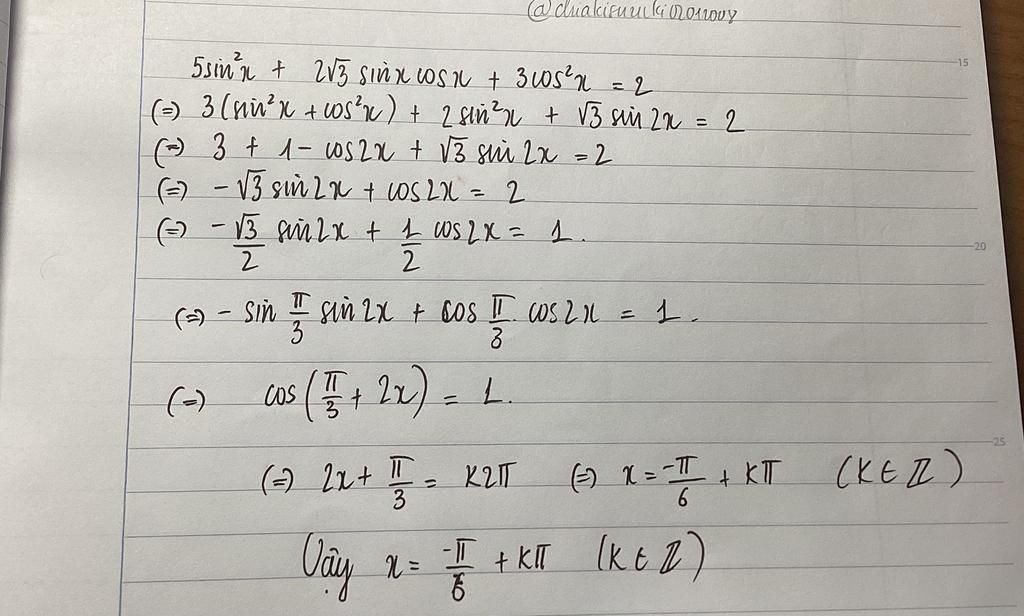 5sin²x + 2√3 sinx cosx + 3cos²x = 2
(=) 3(sin²x + cos²x) + 2sin²x + √3 sin2x = 2
(=) 3 + 1 - cos2x + √3 sin2x = 2
(=) -√3 sin2x + cos2x = 2
(=) -√3/2 sin2x + 1/2 cos2x = 1.
(=) - sin π/3 sin2x + cos π/3 . cos2x = 1.
(=) cos(π/3 + 2x) = 1.
(=) 2x + π/3 = k2π (=) x = -π/6 + kπ (k ∈ ℤ)
Vậy x = -π/6 + kπ (k ∈ ℤ)
15
20
25